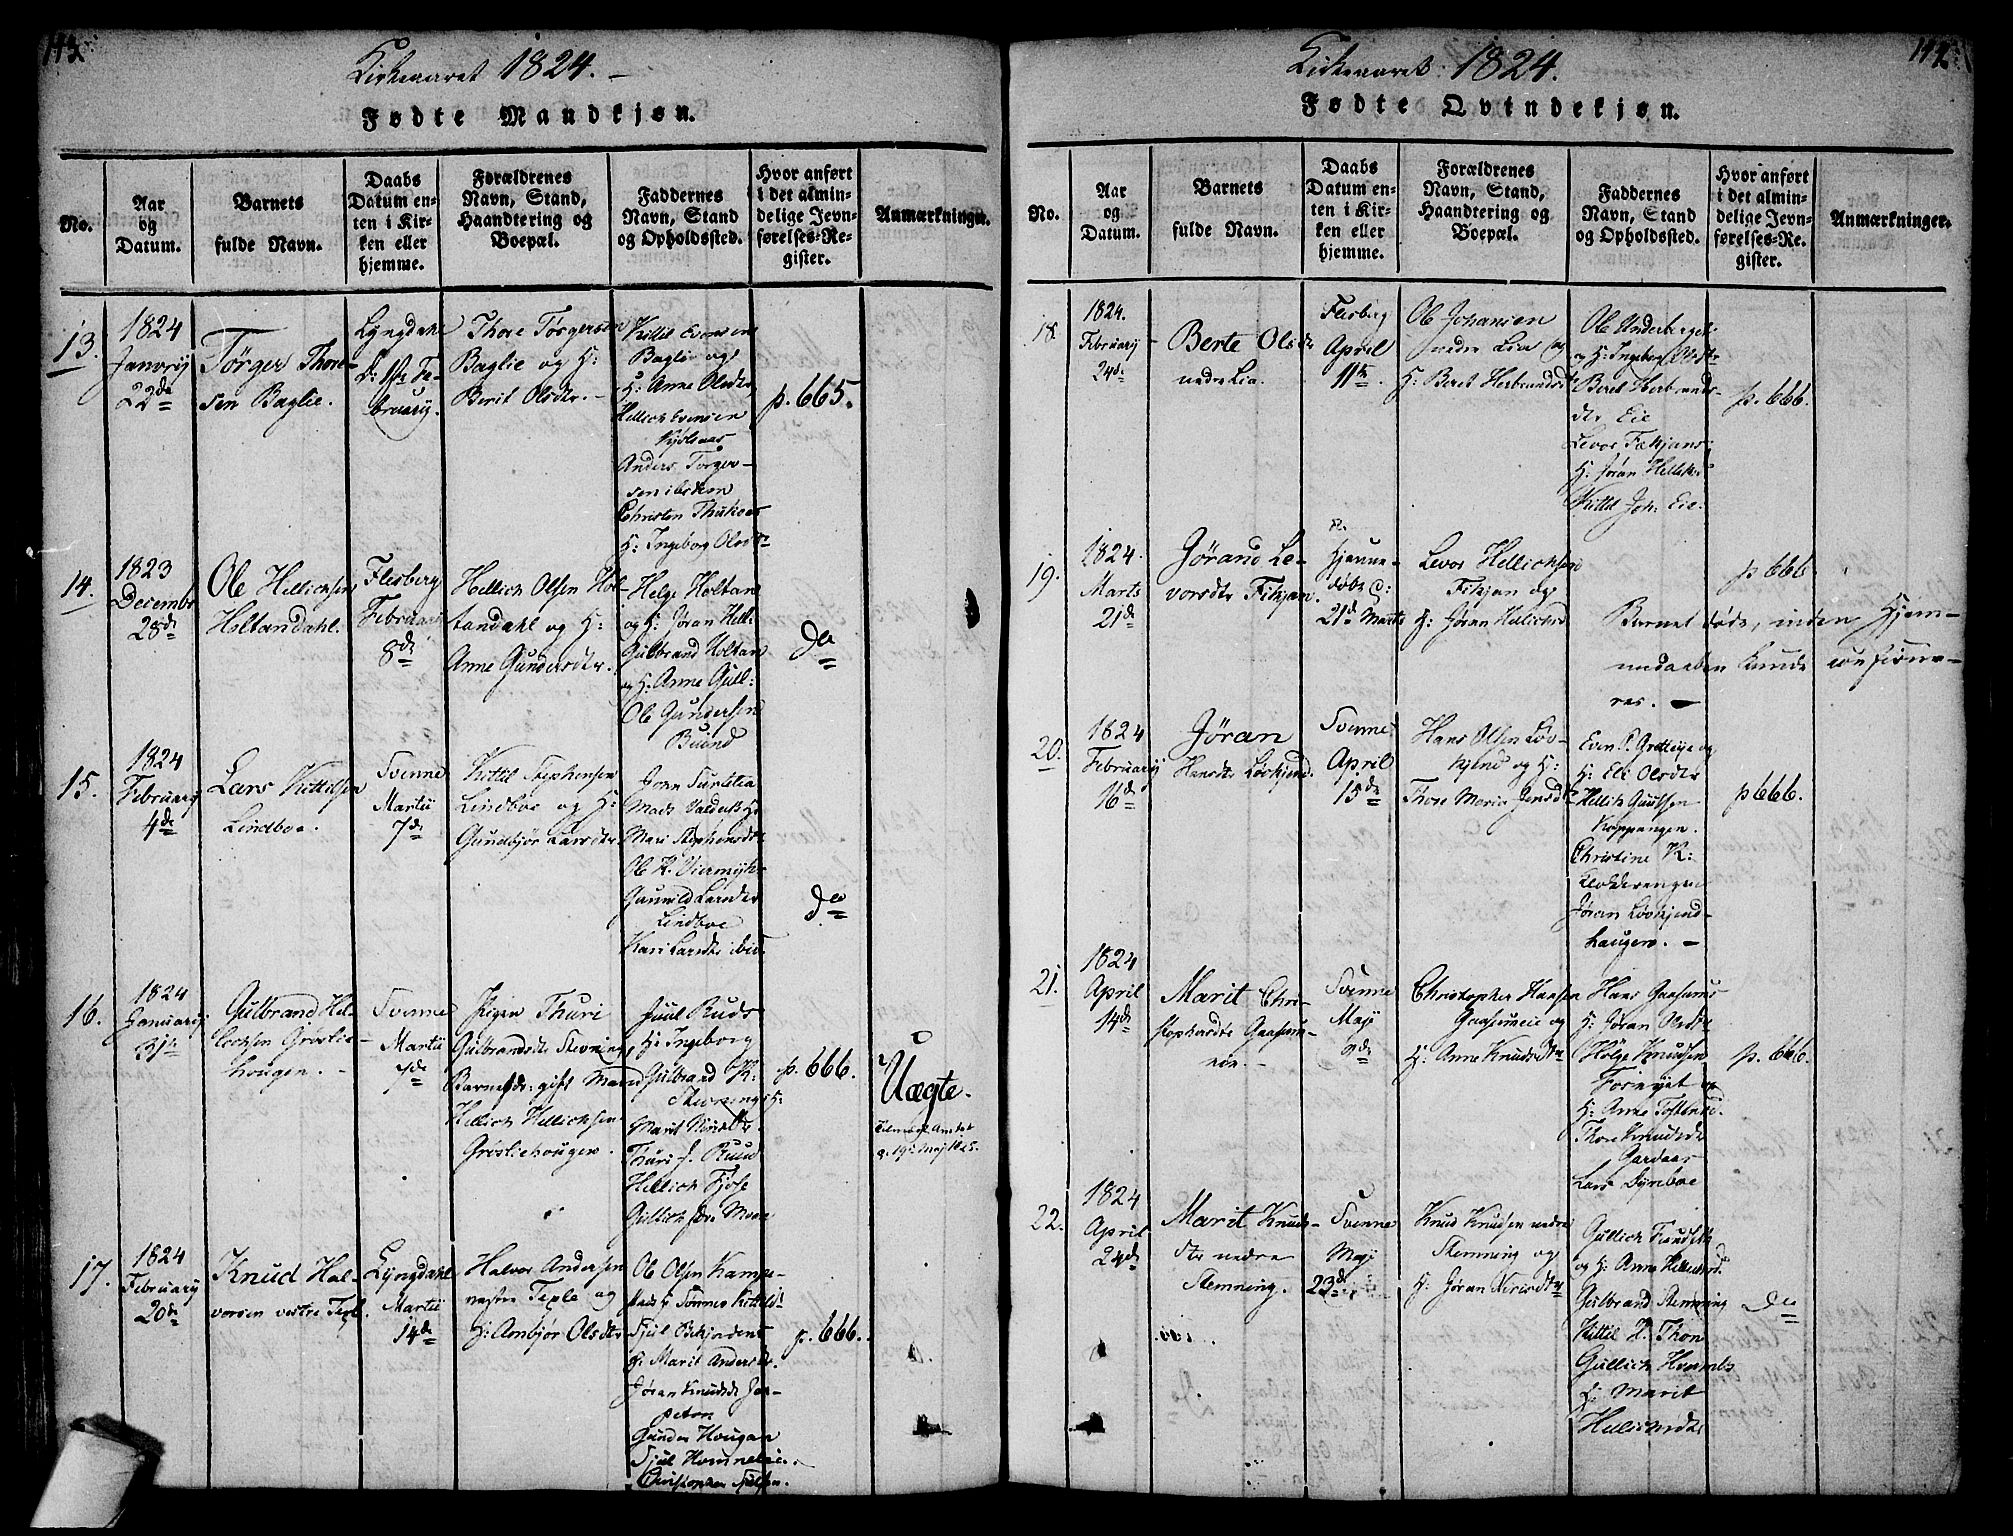 113.
Kirkeaaret 1824. –
Fødte Mandkjøn.
No.
Aar
og
Datum.
Barnets
fulde Navn.
Daabs
Datum en-
ten i Kir-
ken eller
hjemme.
Forældrenes
Navn, Stand,
Haandtering og
Boepæl.
Faddernes
Navn, Stand
og Opholdssted.
Hvor anført
i det almin-
delige Jevn-
førelses-Re-
gister.
Anmærkninger.
13.
1824
Januarij
22de
Törger Thore-
sen Baglie.
Lyngdahl
D: 1ste Fe-
bruarij.
Thore Törgersen
Baglie og H:
Berit Olsdtr. –
Kittil Evensen
Baglie og
H: Anne Olsdtr,
Hellich Evensen
Anders Törger-
sen ibiden
Christen
H: Ingeborg Olsdtr
p. 665.
14.
1823
Decembr
28de
Ole Hellichsen
Holtandahl.
Flesberg
Februarij
8de
Hellich Olsen Hol-
tandahl og H:
Anne Gundersdtr.
Helge Holtan
og H: Jøran Hell:
Gulbrand Holtan
og H: Anne Gull:
Ole Gundersen
Buind
do
15.
1824
Februarij
4de
Lars Kittilsen
Lindboe.
Svenne
Martii
7de
Kittil Stephensen
Lindboe og H:
Gundbjør Larsdtr.
Mari Stephensdtr.
Gunnild Larsdtr
Lindboe
Kari Larsdtr ibid.
do
16.
1824
Januarij
31te
Gulbrand Hel-
lechsen Gröslie-
hougen. –
Svenne
Martii
7de
Pigen Thuri
Gulbransdtr Stevning,
Barnefdr: gift Mand
Hellich Hellichsen
Grösliehougen.
Juul Ruds
H: Ingeborg
Gulbrand K:
Stevning H:
Marit
Thuri J. Ruud
Hellich Fjøse
Gullich
p. 666.
Uægte.
17.
1824
Februarij
20de
Knud Hal-
vorsen vestre Teple.
Lyngdahl
Martii
14de
Halvor Andersen
vestre Teple og
H: Ambjør Olsdtr
Ole Olsen Kampe-
H: Marit Andersdtr.
Jøran Knudsdtr
Gunder Hougan
Christopher
p. 666.
114.
Kirkeaaret 1824.
Fødte Qvindekjøn.
No.
Aar
og
Datum.
Barnets
fulde Navn.
Daabs
Datum en-
ten i Kir-
ken eller
hjemme.
Forældrenes
Navn, Stand,
Haandtering og
Boepæl.
Faddernes
Navn, Stand
og Opholdssted.
Hvor anført
i det almin-
delige Jevn-
førelses-Re-
gister.
Anmærkninger.
18.
1824.
Februarij
24de
Berte Olsdtr
nedre Lia.
Flesberg
April
11te.
Ole Johansen
nedre Lia og
H: Beret Herbrandsdtr
Ole Underberget
og H: Ingeborg Olsdtr
Beret Herbrands-
dtr Eie
Levor Fikjan,
H: Jøran Hellichsd
Kittil Joh: Eie.
p. 666.
19.
1824.
Marts
21de
Jørand Le-
vorsdtr Fikjan.
Hjemme-
døbt d:
21de Marts
Levor Hellichsen
Fikjan og
H: Jøran Hellichsd
p 666
Barnet døde, inden Hjem-
medaaben kunde confirme-
res. –
20.
1824
Februarij
16de
Jøran
Hansdtr Løvhjend.
Svenne
April
15de
Hans Olsen Løv-
hjend og H:
Thore Maria Jensdtr
Even P. Grøtteije og
H: Eli Olsdtr
Hellich Guulsen
Koppangen.
Christine K:
Jøran Løvhjend-
haugen. –
p 666.
21.
1824
April
14de
Marit Chri-
stophersdtr Gaasum-
eie. –
Svenne
Maji
9de
Christopher Hansen
Gaasumeie og
H: Anne Knudsdtr
Hans Gaasums
H: Jøran Olsdtr
Helge Knudsen
Fosnyet og
H: Anne
Thore Knudsdtr
Gardaas
Lars Dyreboe
p. 666.
22.
1824
April
24de
Marit Knuds-
dtr nedre
Stemning.
Svenne
Maji
23de
Knud Knudsen nedre
Stemning og
H: Jøran Nirisdtr
Gullich
og H: Anne Hellichsd.
Gulbrand Stemning
Kittil H. Thon
Gullich
H: Marit
do